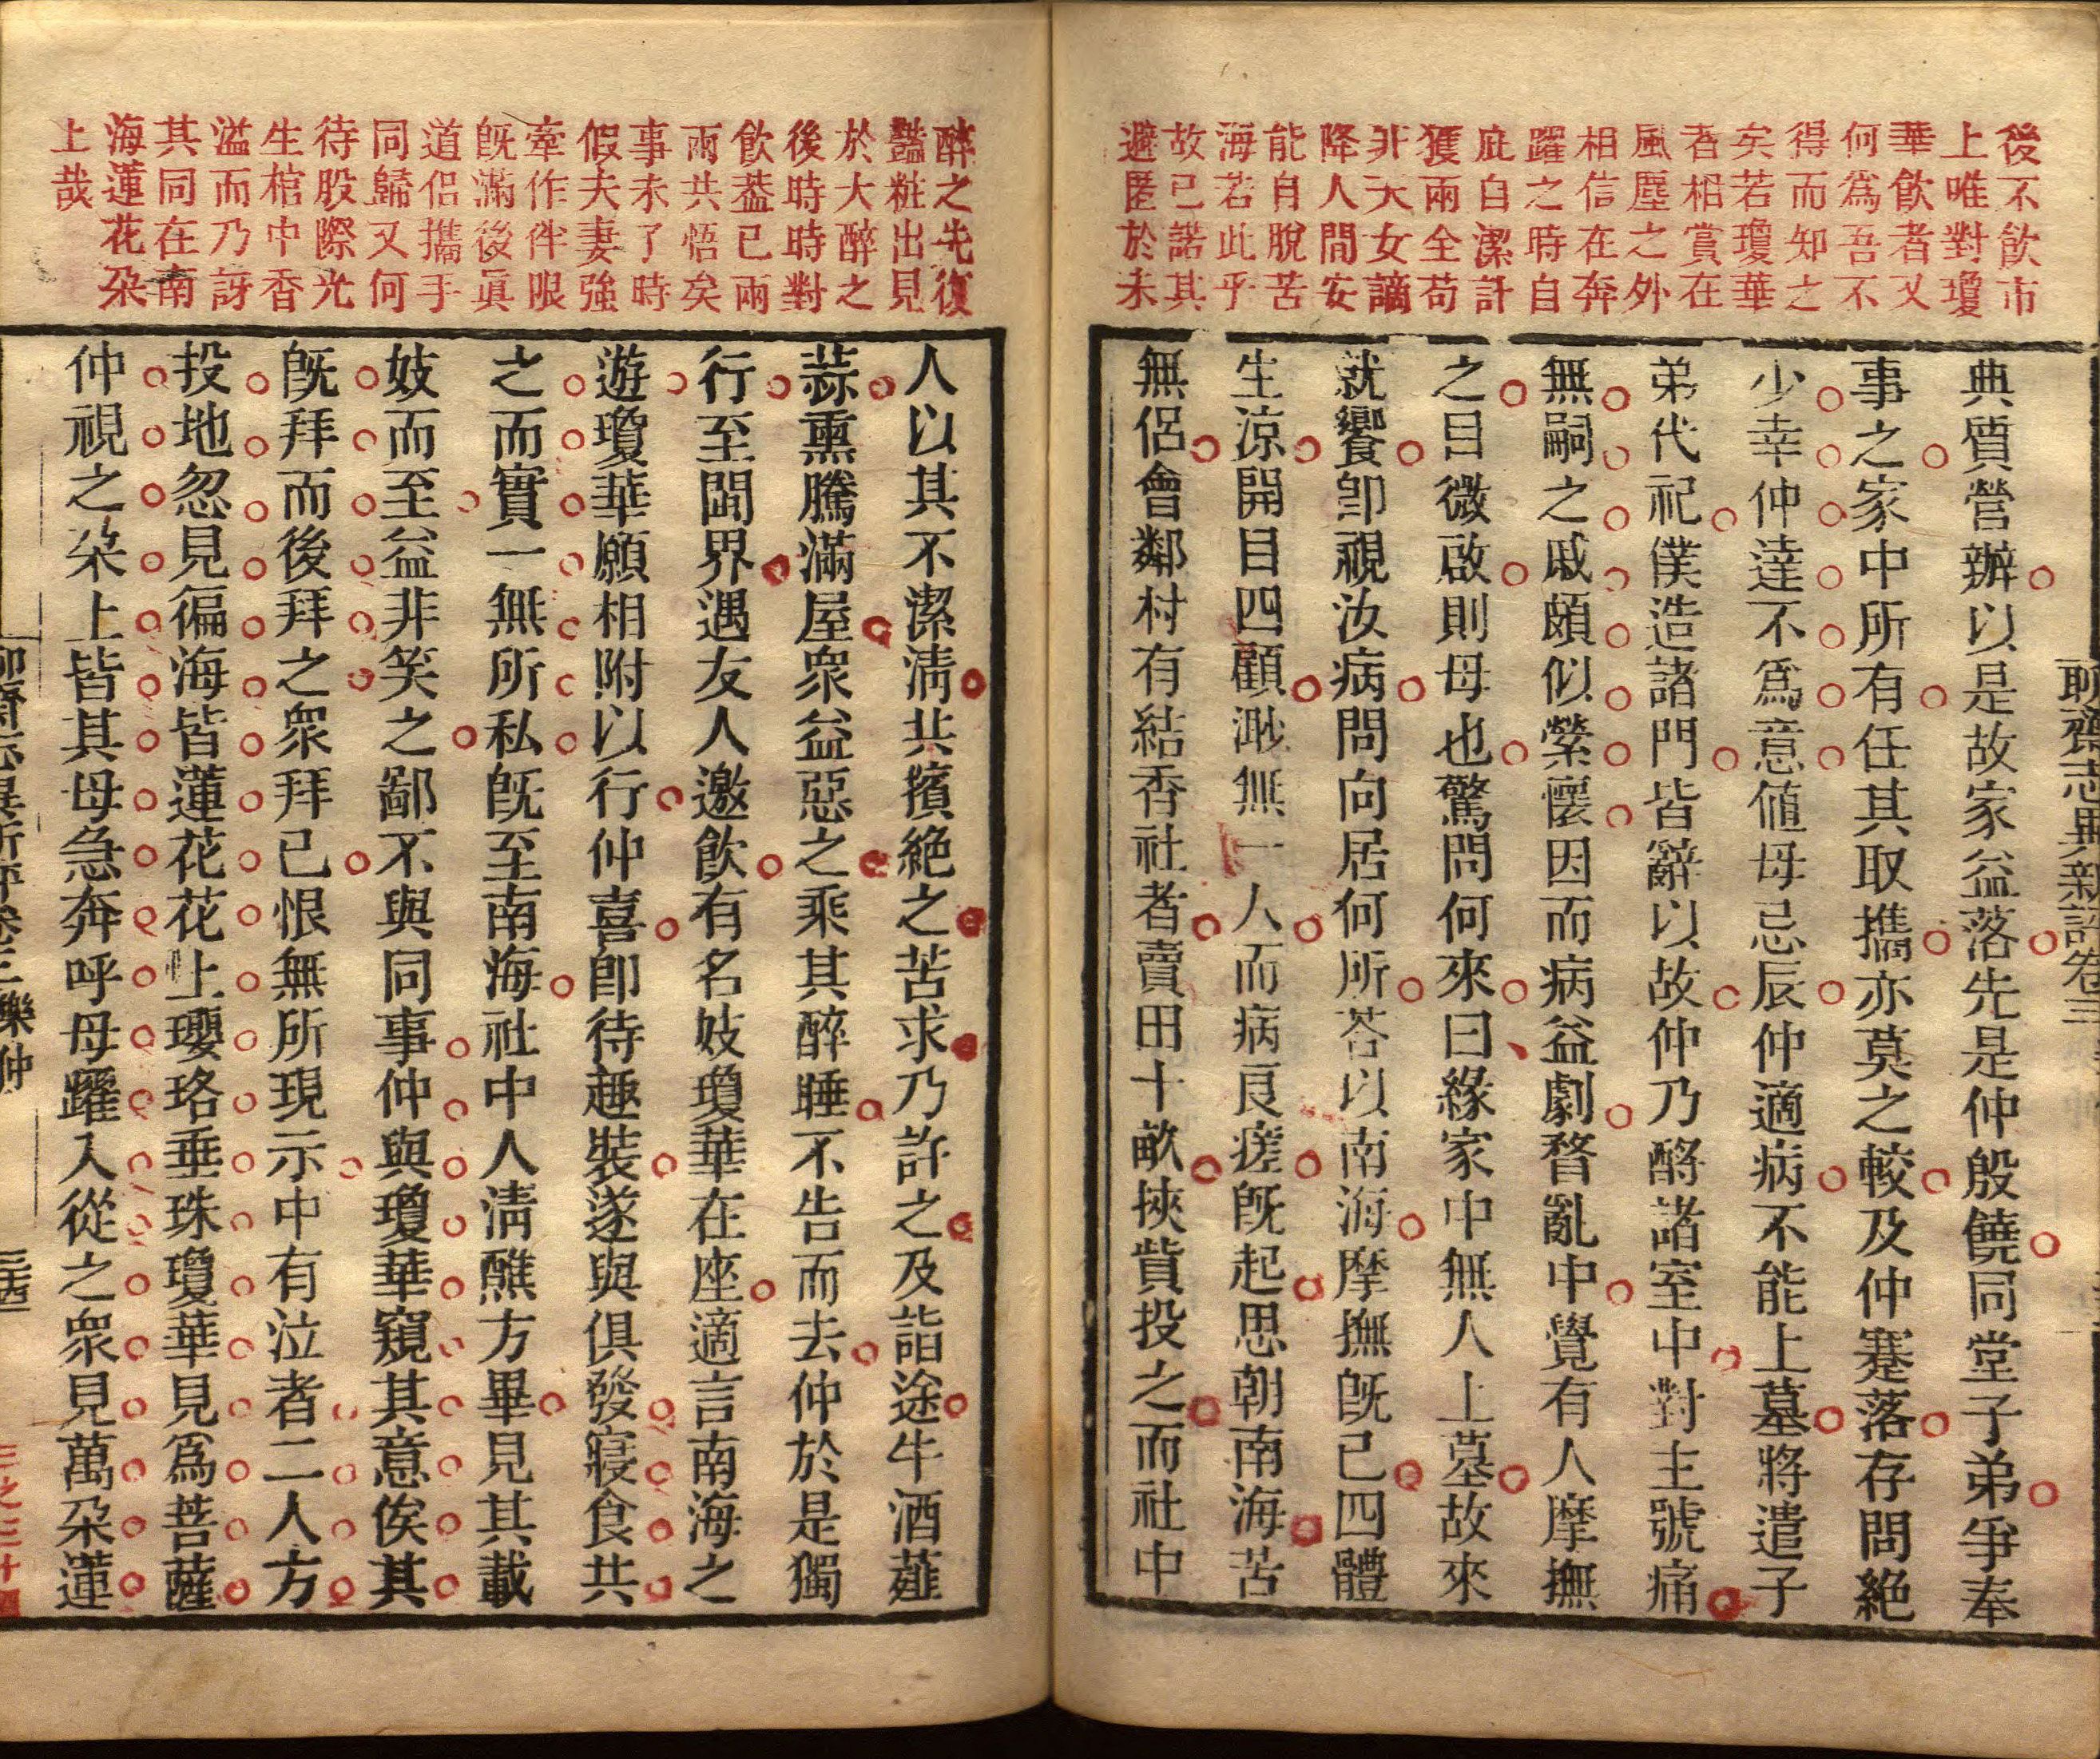 後不飲市
上唯對瓊
華飲者又
何爲吾不
得而知之
矣若瓊華
者相賞在
風塵之外
相信在奔
躍之時自
庇白潔許
獲兩全苟
非天女謫
降人間安
能自脫苦
海若此乎
故已諾其
避匿於未
聊齋志異新評卷三
典質營辦以是故家益落先是仲殷饒同堂子弟爭奉
事之家中所有任其取攜亦莫之較及仲蹇落存問絕
少幸仲達不爲意値母忌辰仲適病不能上墓將遣子
弟代祀僕造諸門皆辭以故仲乃酹諸室中對主號痛
無嗣之戚頗似縈懷因而病益劇瞀亂中覺有人摩撫
之目微啟則母也驚問何來曰緣家中無人上墓故來
就饗卽視汝病問向居何所荅以南海摩撫旣已四體
生涼開目四顧渺無一人而病良瘥旣起思朝南海苦
無侶會鄰村有結香社者賣田十畝挾貲投之而社中
醉之先復
豔粧出見
於大醉之
後時時對
飲蓋已兩
兩共悟矣
事未了時
假夫妻強
牽作伴限
旣滿後眞
道侶攜手
同歸又何
待股際光
生棺中香
溢而乃訝
其同在南
海蓮花朶
上哉
人以其不潔淸共擯絕之苦求乃許之及詣途牛酒薤
蒜熏騰滿屋眾益惡之乘其醉睡不告而去仲於是獨
行至閩界遇友人邀飮有名妓瓊華在座適言南海之
遊瓊華願相附以行仲喜卽待趣裝遂與俱發寢食共
之而實一無所私旣至南海社中人淸醮方畢見其載
妓而至益非笑之鄙不與同事仲與瓊華窺其意俟其
旣拜而後拜之眾拜已恨無所現示中有泣者二人方
投地忽見徧海皆蓮花花上瓔珞垂珠瓊華見爲菩薩
仲視之朶上皆其母急奔呼母躍入從之眾見萬朶蓮
聊齋志異新評卷三樂仲
三十四